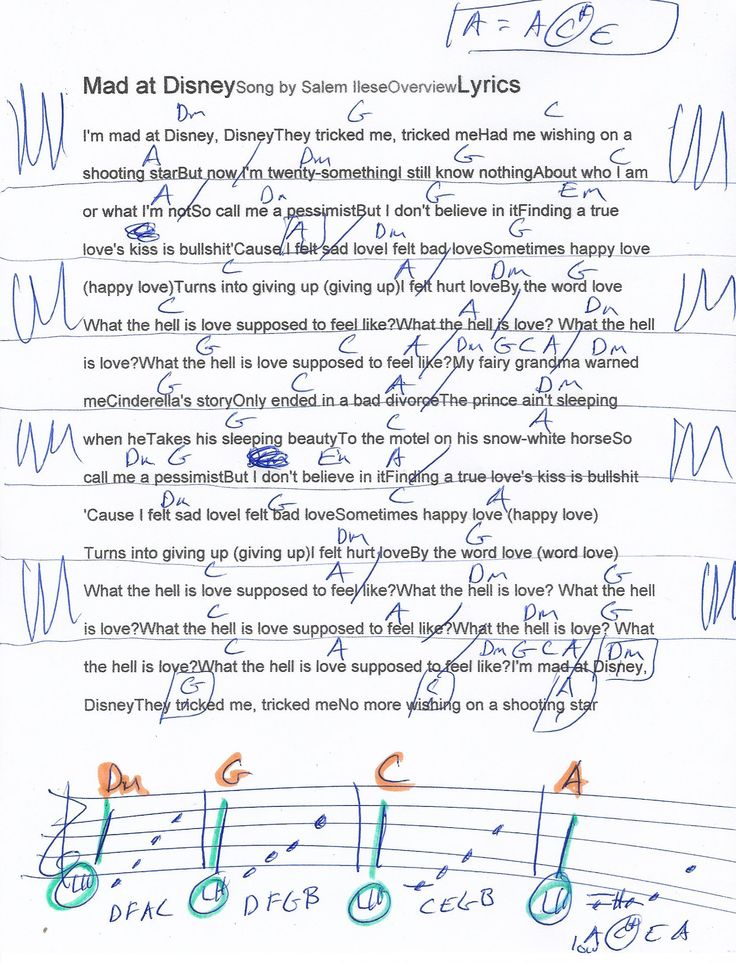 A = A C# E
Mad at DisneySong by Salem IleseOverviewLyrics
Dm G C
I'm mad at Disney, DisneyThey tricked me, tricked meHad me wishing on a
A Dm G C
shooting starBut now I'm twenty-somethingI still know nothingAbout who I am
A Dm G Em
or what I'm notSo call me a pessimistBut I don't believe in itFinding a true
A Dm G
love's kiss is bullshit'Cause I felt sad loveI felt bad loveSometimes happy love
C A Dm G
(happy love)Turns into giving up (giving up)I felt hurt loveBy the word love
C A Dm
What the hell is love supposed to feel like?What the hell is love? What the hell
G C A Dm G C A Dm
is love?What the hell is love supposed to feel like?My fairy grandma warned
G C A Dm
meCinderella's storyOnly ended in a bad divorceThe prince ain't sleeping
G C A
when heTakes his sleeping beautyTo the motel on his snow-white horseSo
Dm G Em A
call me a pessimistBut I don't believe in itFinding a true love's kiss is bullshit
Dm G C A
'Cause I felt sad loveI felt bad loveSometimes happy love (happy love)
Dm G
Turns into giving up (giving up)I felt hurt loveBy the word love (word love)
C A Dm G
What the hell is love supposed to feel like?What the hell is love? What the hell
C A Dm G
is love?What the hell is love supposed to feel like?What the hell is love? What
C A Dm G C A Dm
the hell is love?What the hell is love supposed to feel like?I'm mad at Disney,
G C A
DisneyThey tricked me, tricked meNo more wishing on a shooting star
Dm G C A
LH LH LH LH
DFAC DFGB CEGB low A C# E A